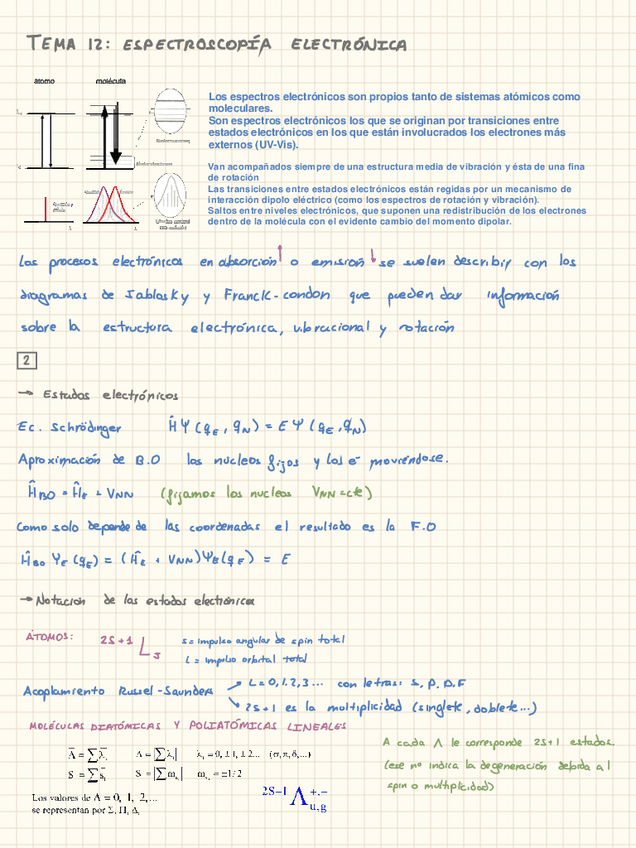 TEMA 12: ESPECTROSCOPÍA ELECTRÓNICA
átomo molécula
Los espectros electrónicos son propios tanto de sistemas atómicos como
moleculares.
Son espectros electrónicos los que se originan por transiciones entre
estados electrónicos en los que están involucrados los electrones más
externos (UV-Vis).
Van acompañados siempre de una estructura media de vibración y ésta de una fina
de rotación
Las transiciones entre estados electrónicos están regidas por un mecanismo de
interacción dipolo eléctrico (como los espectros de rotación y vibración).
Saltos entre niveles electrónicos, que suponen una redistribución de los electrones
dentro de la molécula con el evidente cambio del momento dipolar.
Los procesos electrónicos en absorción↑ o emisión↓ se suelen describir con los
diagramas de Jablosky y Franck-condon que pueden dar información
sobre la estructura electrónica, vibracional y rotación
2
→ Estados electrónicos
Ec. Schrödinger ĤΨ(qE, qN) = EΨ(qE, qN)
Aproximación de B.O los nucleos fijos y los e⁻ moviéndose.
ĤBO = ĤE + VNN (fijamos los nucleos VNN=cte)
Como solo depende de las coordenadas el resultado es la F.O
ĤBO ΨE(qE) = (ĤE + VNN)ΨE(qE) = E
→ Notación de los estados electrónicos
ÁTOMOS: 2S+1 L J S = impulso angular de spin total
L = impulso orbital total
Acoplamiento Russel-Saunders L = 0,1,2,3... con letras: S, P, D, F
2S+1 es la multiplicidad (singlete, doblete...)
MOLÉCULAS DIATÓMICAS Y POLIATÓMICAS LINEALES
Λ = ∑λi Λ = |∑λi| λi = 0, ±1, ±2... (σ, π, δ,...)
S = ∑si S = |∑msi| msi = ±1/2
Los valores de Λ = 0, 1, 2,...
se representan por Σ, Π, Δ,
2S+1 Λ +,- u,g
A cada Λ le corresponde 2S+1 estados
(ese nº indica la degeneración debida al
spin o multiplicidad)